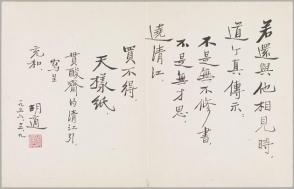 若還與他相見時,
道个真傳示:
不是無不修書,
不是無才思:
遶清江,
買不得
天樣紙.
貫酸齋的清江引,
寫呈
充和
胡適
一九五六,三,九